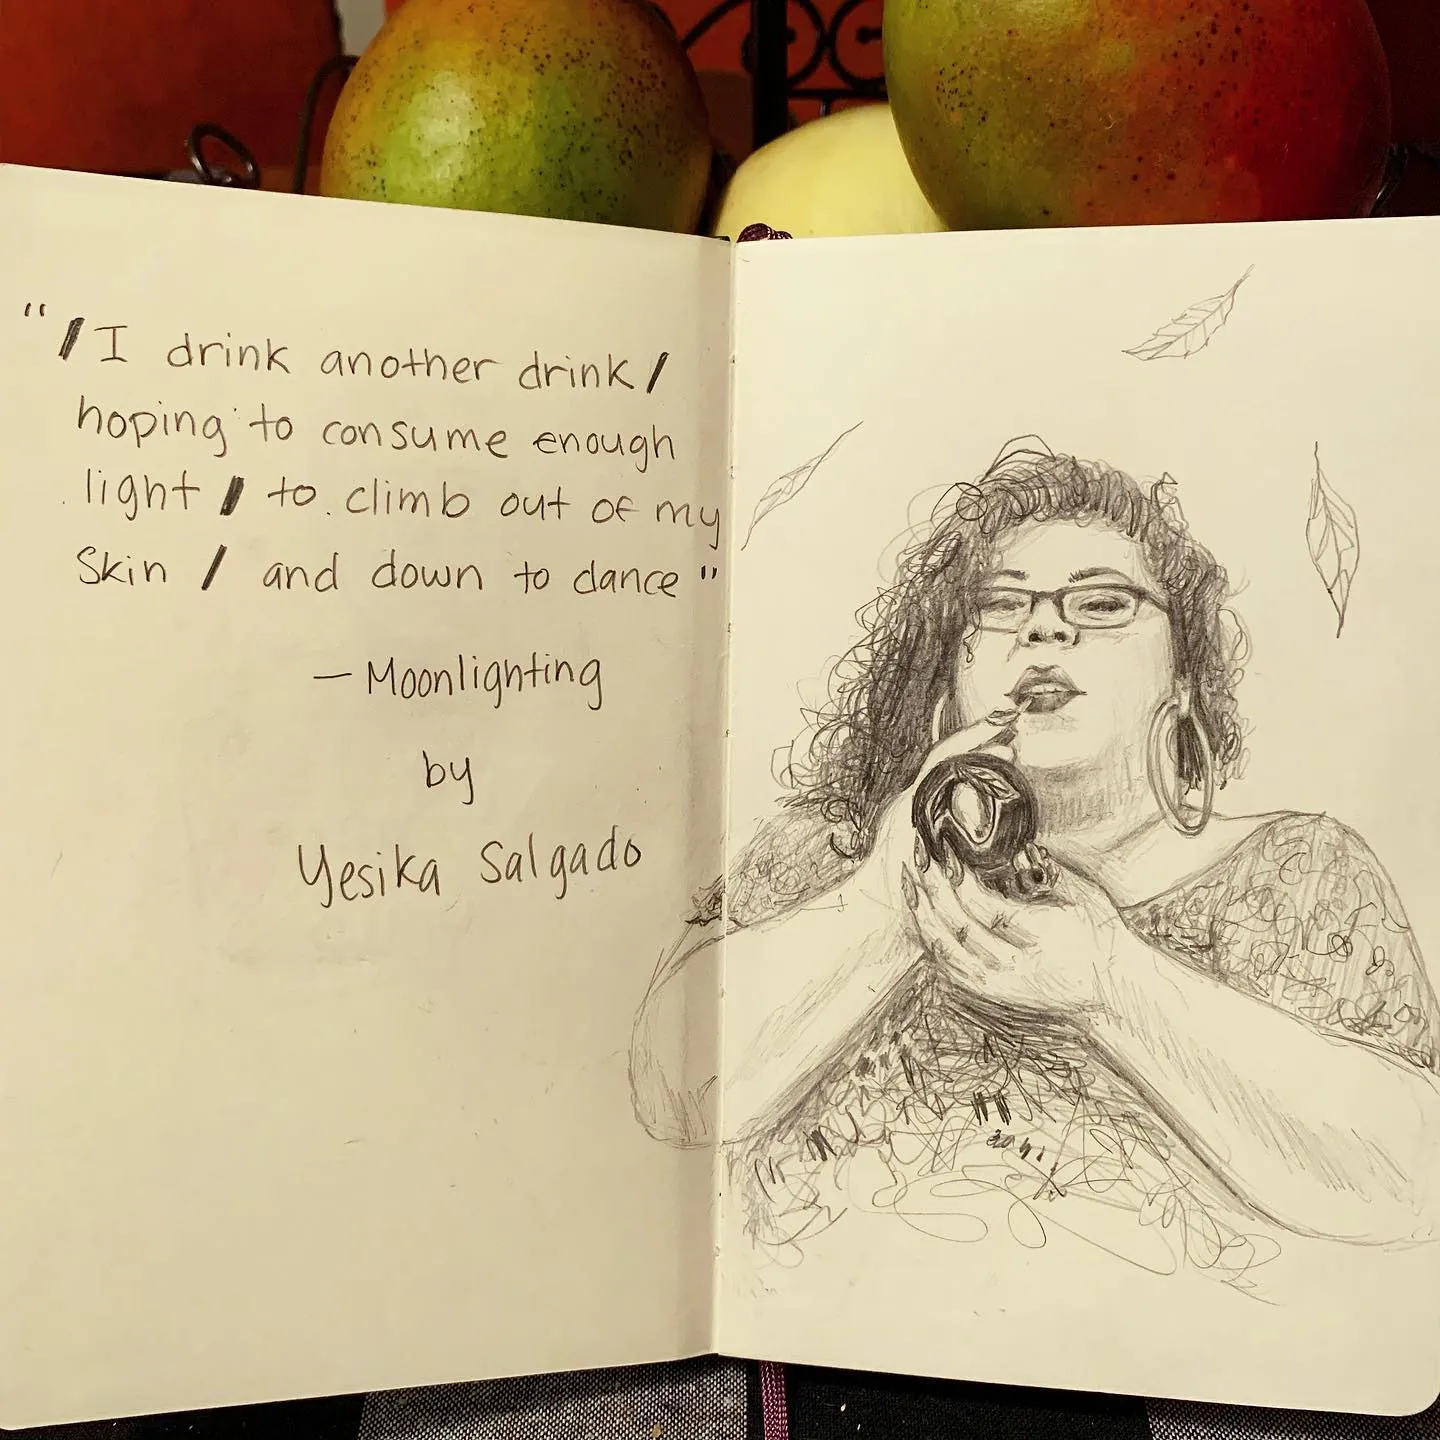 "/I drink another drink/
hoping to consume enough
light / to climb out of my
Skin / and down to dance"
— Moonlighting
by
Yesika Salgado